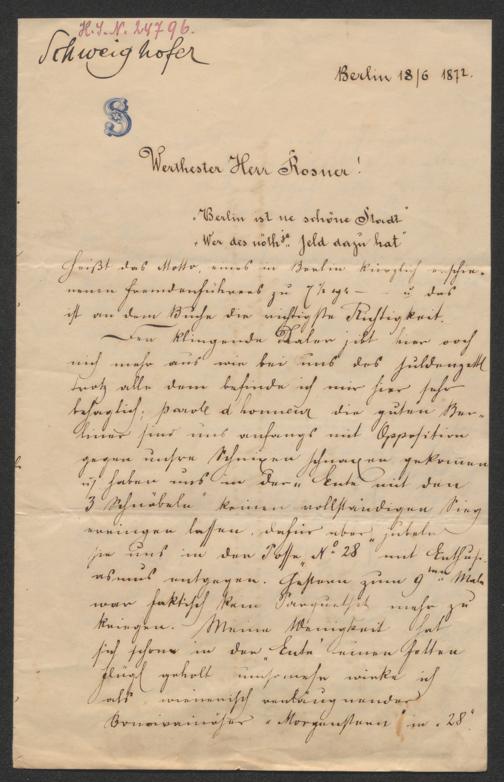 H. I. N. 24796.
Schweighofer
Berlin 18/6 1872.
S
Werthester Herr Rosner!
„Berlin ist ne schöne Stadt"
„Wer des nöth'ge Jeld dazu hat"
heißt das Motto, eines in Berlin kürzlich erschie-
nenen Fremdenführers zu 7½ sgr – u das
ist an dem Buche die richtigste Richtigkeit.
Den klingende Thaler jibt hier ooch
nich mehr aus wie bei uns des Juldenzettl
trotz alle dem befinde ich mir hier sehr
behaglich; parole d honneur die guten Ber-
liner sind uns anfangs mit Opposition
gegen unsre Schnaxen gekommen
haben uns in der „Ente mit den
3 Schnäbeln" keinen vollständigen Sieg
erringen lassen, dafür aber jubeln
sie uns in der Posse „No 28" mit Enthusi-
asmus entgegen. Gestern zum 9ten Male
war faktisch kein Parquetsitz mehr zu
kriegen. Meine Wenigkeit hat
sich schon in der „Ente" einen fetten
Flügl geholt nunmehr wirke ich
als wienerisch
„Morgenstern" in „28".